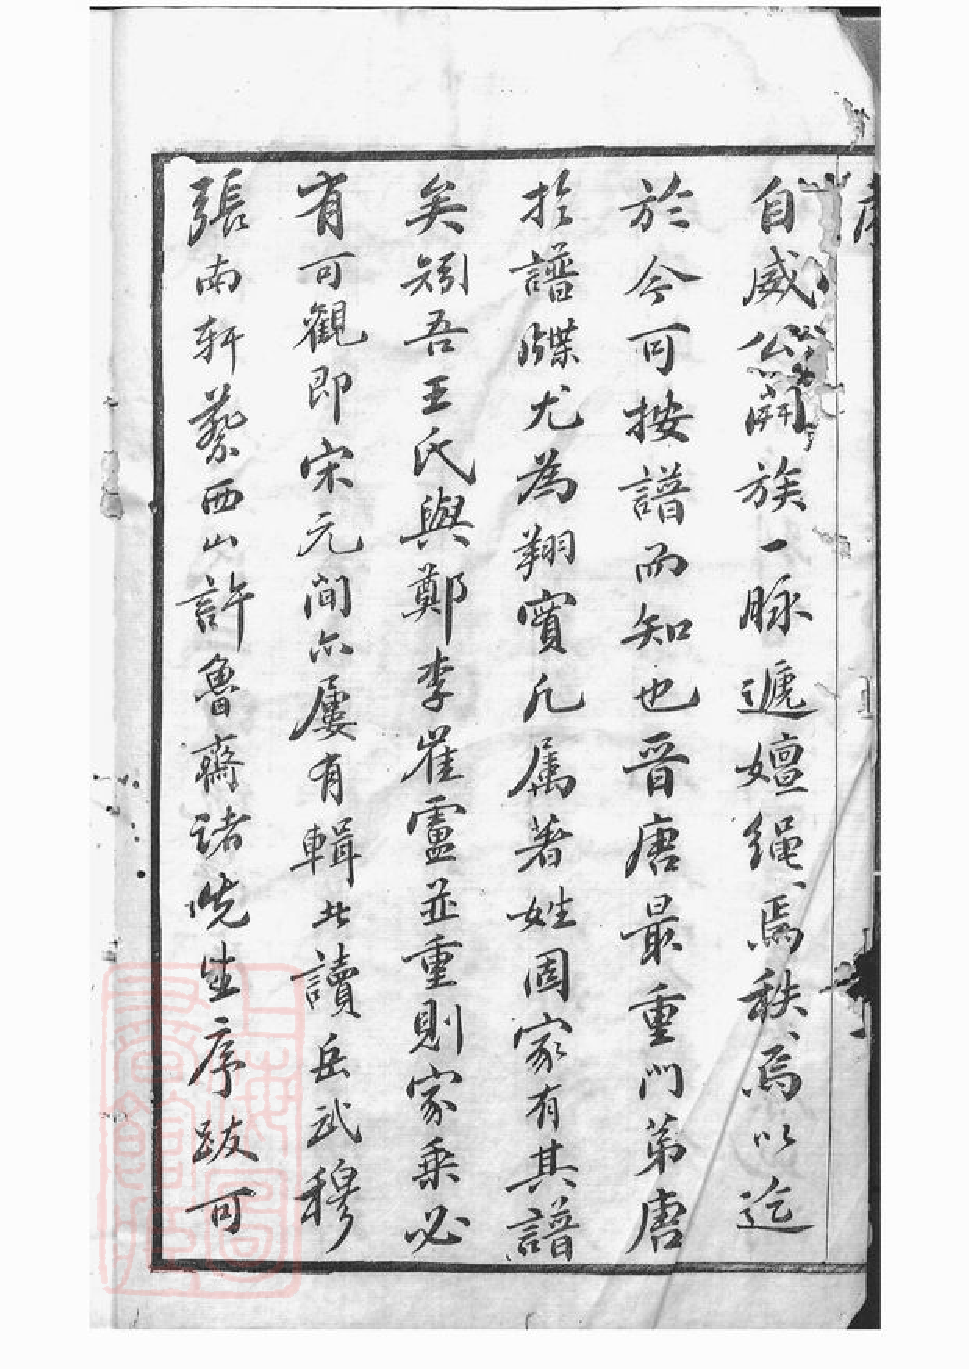 自威公開族一脉遞嬗繩、焉秩、焉以迄
於今可按譜而知也晋唐最重門第唐
於譜牒尤為翔實凡属著姓固家有其譜
矣矧吾王氏與鄭李崔盧並重則家乘必
有可觀即宋元間亦屢有輯北讀岳武穆
張南軒蔡西山許魯齋诸先生序跋可